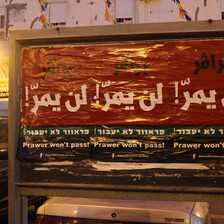 برافر برافر
لن يمرّ! لن يمرّ! يمرّ!
פראוור לא יעבור! פראוור לא יעבור! פראוור
Prawer won't pass! Prawer won't pass! Prawer won't